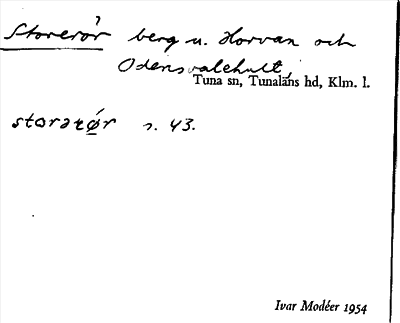 Storerör berg u. Horvan och
Odensvalehult,
Tuna sn, Tunaläns hd, Klm. l.
storərø̱r s. 43.
Ivar Modéer 1954